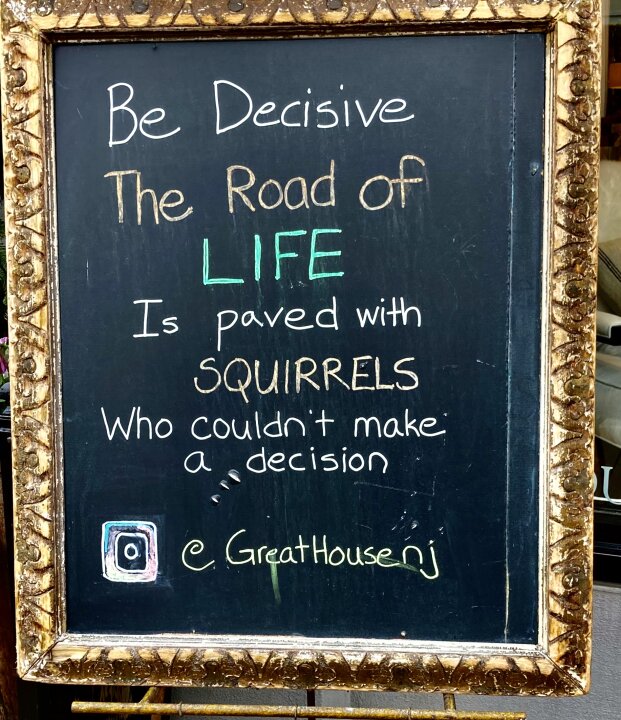 Be Decisive
The Road of
LIFE
Is paved with
SQUIRRELS
Who couldn't make
a decision
@GreatHousenj